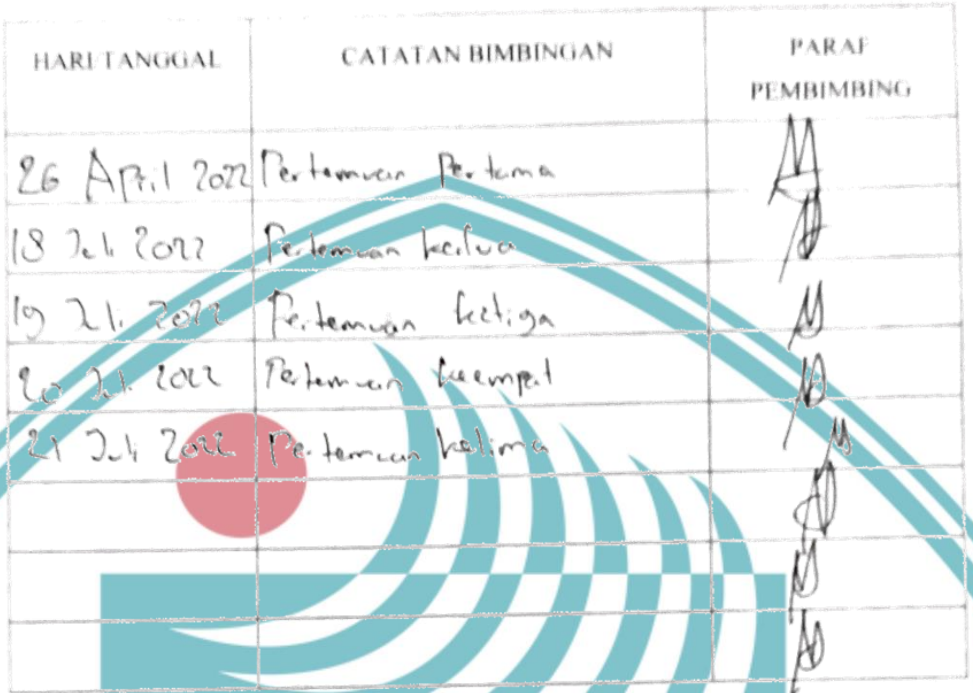 HARI/TANGGAL CATATAN BIMBINGAN PARAF
PEMBIMBING
26 April 2022 Pertemuan Pertama
18 Juli 2022 Pertemuan kedua
19 Juli 2022 Pertemuan ketiga
20 Juli 2022 Pertemuan keempat
21 Juli 2022 Pertemuan kelima